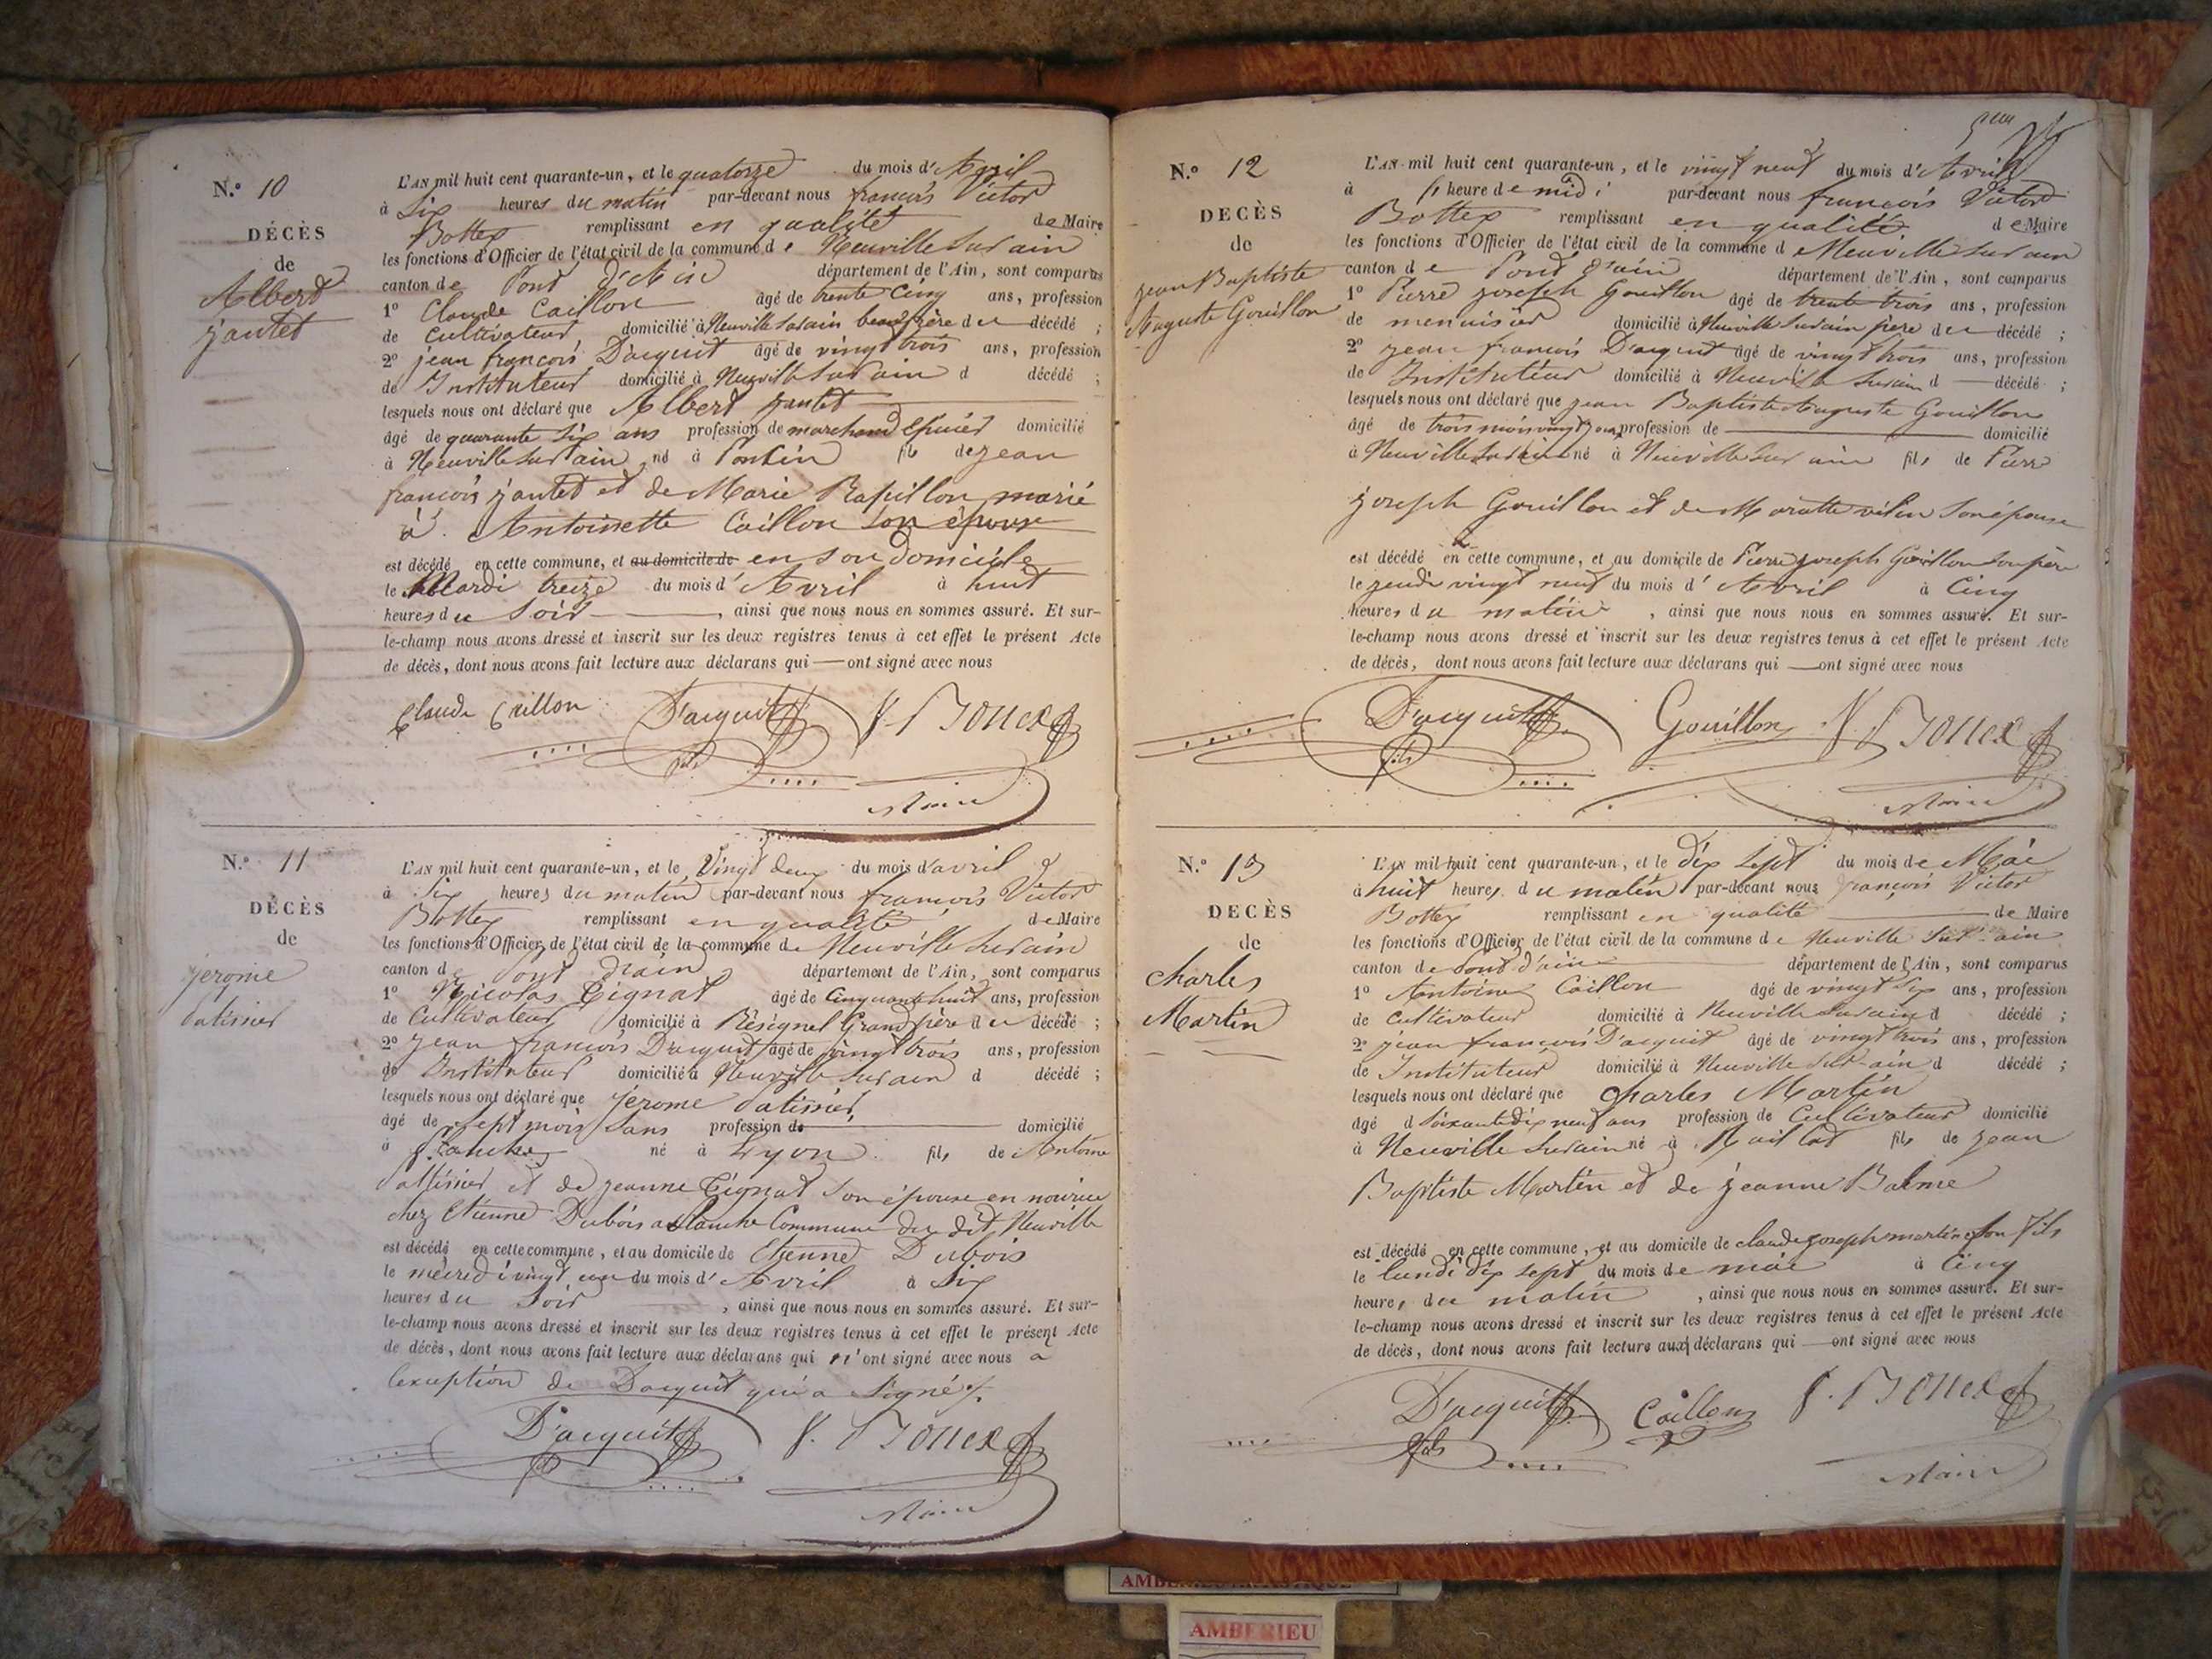 N.° 10
DÉCÈS
de
Albert
jantet
L'AN mil huit cent quarante-un, et le quatorze du mois d'Avril
à Six heures du matin par-devant nous françois Victor
Bottex remplissant en qualité de Maire
les fonctions d'Officier de l'état civil de la commune de Neuville sur ain
canton de Pont D'Ain département de l'Ain, sont comparus
1° Claude Caillon âgé de trente Cinq ans, profession
de Cultivateur domicilié à Neuville surain beaufrère du décédé ;
2° jean françois D'acquit âgé de vingt trois ans, profession
de Instituteur domicilié à Neuville sur ain d décédé ;
lesquels nous ont déclaré que Albert jantet
âgé de quarante Six ans profession de marchand Epicier domicilié
à Neuville sur ain né à Poncin fils de jean
françois jantet et de Marie Rapillon marié
à Antoinette Caillon Son épouse
est décédé en cette commune, et au domicile de en son Domicile
le Mardi treize du mois d'Avril à huit
heures du Soir, ainsi que nous nous en sommes assuré. Et sur-
le-champ nous avons dressé et inscrit sur les deux registres tenus à cet effet le présent Acte
de décès, dont nous avons fait lecture aux déclarans qui — ont signé avec nous
Claude Caillon D'acquit fils V. Bottex
Maire
N.° 11
DÉCÈS
de
jerome
L'AN mil huit cent quarante-un, et le Vingt deux du mois d'avril
à Six heures du matin par-devant nous françois Victor
Bottex remplissant en qualité de Maire
les fonctions d'Officier de l'état civil de la commune de Neuville surain
canton de Pont d'ain département de l'Ain, sont comparus
1° Nicolas Tignat âgé de Cinquante huit ans, profession
de Cultivateur domicilié à Résignel Grand père du décédé ;
2° jean françois D'acquit âgé de vingt trois ans, profession
de Instituteur domicilié à Neuville sur ain d décédé ;
lesquels nous ont déclaré que jérome
âgé de Sept mois Sans profession de domicilié
à né à Lyon fils de Antoine
et de jeanne Tignat son épouse en nourice
chez Etienne Dubois a Planche Commune du dit Neuville
est décédé en cette commune, et au domicile de Etienne Dubois
le mécredi vingt un du mois d'Avril à Six
heures du Soir, ainsi que nous nous en sommes assuré. Et sur-
le-champ nous avons dressé et inscrit sur les deux registres tenus à cet effet le présent Acte
de décès, dont nous avons fait lecture aux déclarans qui n'ont signé avec nous a
lexception de Dacquit qui a Signé
D'acquit fils V. Bottex
Maire
N.° 12
DECÈS
de
jean Baptiste
Auguste Gouillon
L'AN mil huit cent quarante-un, et le vingt neuf du mois d'Avril
à heure de midi par-devant nous françois Victor
Bottex remplissant en qualité de Maire
les fonctions d'Officier de l'état civil de la commune de Neuville sur ain
canton de Pont d'ain département de l'Ain, sont comparus
1° Pierre joseph Gouillon âgé de trente trois ans, profession
de menuisier domicilié à Neuville sur ain père du décédé ;
2° jean françois D'acquit âgé de vingt trois ans, profession
de Instituteur domicilié à Neuville sur ain d — décédé ;
lesquels nous ont déclaré que jean Baptiste Auguste Gouillon
âgé de trois mois vingt jours profession de domicilié
à Neuville sur ain né à Neuville sur ain fils de Pierre
joseph Gouillon et de son épouse
est décédé en cette commune, et au domicile de Pierre joseph Gouillon son père
le jeudi vingt neuf du mois d'Avril à Cinq
heures du matin, ainsi que nous nous en sommes assuré. Et sur-
le-champ nous avons dressé et inscrit sur les deux registres tenus à cet effet le présent Acte
de décès, dont nous avons fait lecture aux déclarans qui — ont signé avec nous
D'acquit fils Gouillon V. Bottex
Maire
N.° 13
DECÈS
de
Charles
Martin
L'AN mil huit cent quarante-un, et le dix Sept du mois de Mai
à huit heures du matin par-devant nous françois Victor
Bottex remplissant en qualité de Maire
les fonctions d'Officier de l'état civil de la commune de Neuville sur-ain
canton de Pont d'ain département de l'Ain, sont comparus
1° Antoine Caillon âgé de vingt Six ans, profession
de Cultivateur domicilié à Neuville surain d décédé ;
2° jean françois D'acquit âgé de vingt trois ans, profession
de Instituteur domicilié à Neuville sur-ain d décédé ;
lesquels nous ont déclaré que Charles Martin
âgé d Soixante dix neuf ans profession de Cultivateur domicilié
à Neuville surain né à Maillat fils de jean
Baptiste Martin et de jeanne Balme
est décédé en cette commune, et au domicile de claude joseph martin son fils
le lundi dix sept du mois de mai à Cinq
heures du matin, ainsi que nous nous en sommes assuré. Et sur-
le-champ nous avons dressé et inscrit sur les deux registres tenus à cet effet le présent Acte
de décès, dont nous avons fait lecture aux déclarans qui — ont signé avec nous
D'acquit fils Caillon V. Bottex
Maire
AMBERIEU